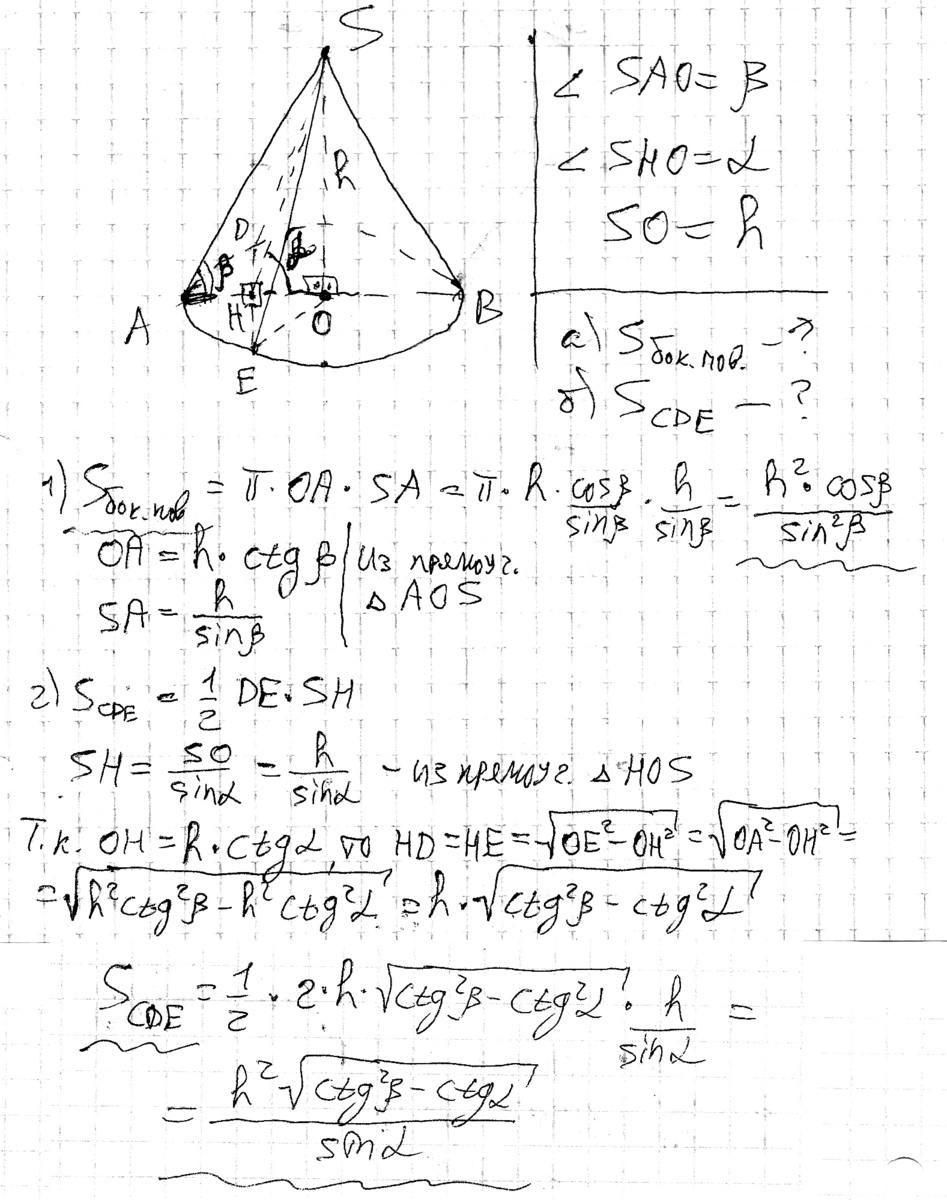 S
h
D
β
β
A
H
O
B
E
∠ SAO = β
∠ SHO = α
SO = h
а) Sбок.пов. — ?
б) SCDE — ?
1) Sбок.пов = π · OA · SA = π · h · cosβ/sinβ · h/sinβ = h² · cosβ/sin²β
OA = h · ctg β | из прямоуг.
SA = h/sinβ | Δ AOS
2) SCDE = 1/2 DE · SH
SH = SO/sinα = h/sinα - из прямоуг. Δ HOS
Т.к. OH = h · ctgα, то HD = HE = √(OE² - OH²) = √(OA² - OH²) =
= √(h²ctg²β - h²ctg²α) = h · √(ctg²β - ctg²α)
SCDE = 1/2 · 2 · h · √(ctg²β - ctg²α) · h/sinα =
= h²√(ctg²β - ctgα)/sinα